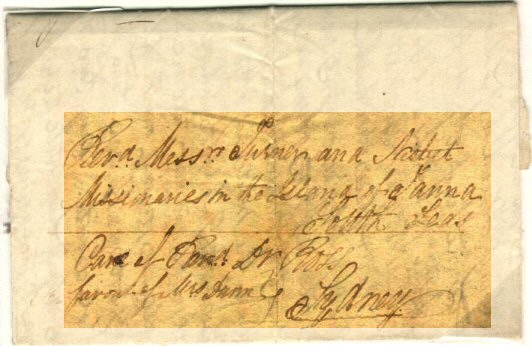 Revd. Messrs. Turner and Nisbet
Missionaries in the Island of Tanna
South Seas
Care of Revd. Dr Ross
favour of Mrs Dunn
Sydney